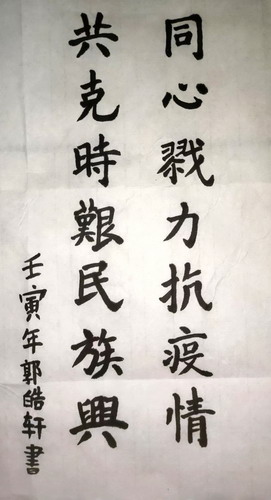 同心戮力抗疫情
共克時艱民族興
壬寅年郭皓轩書